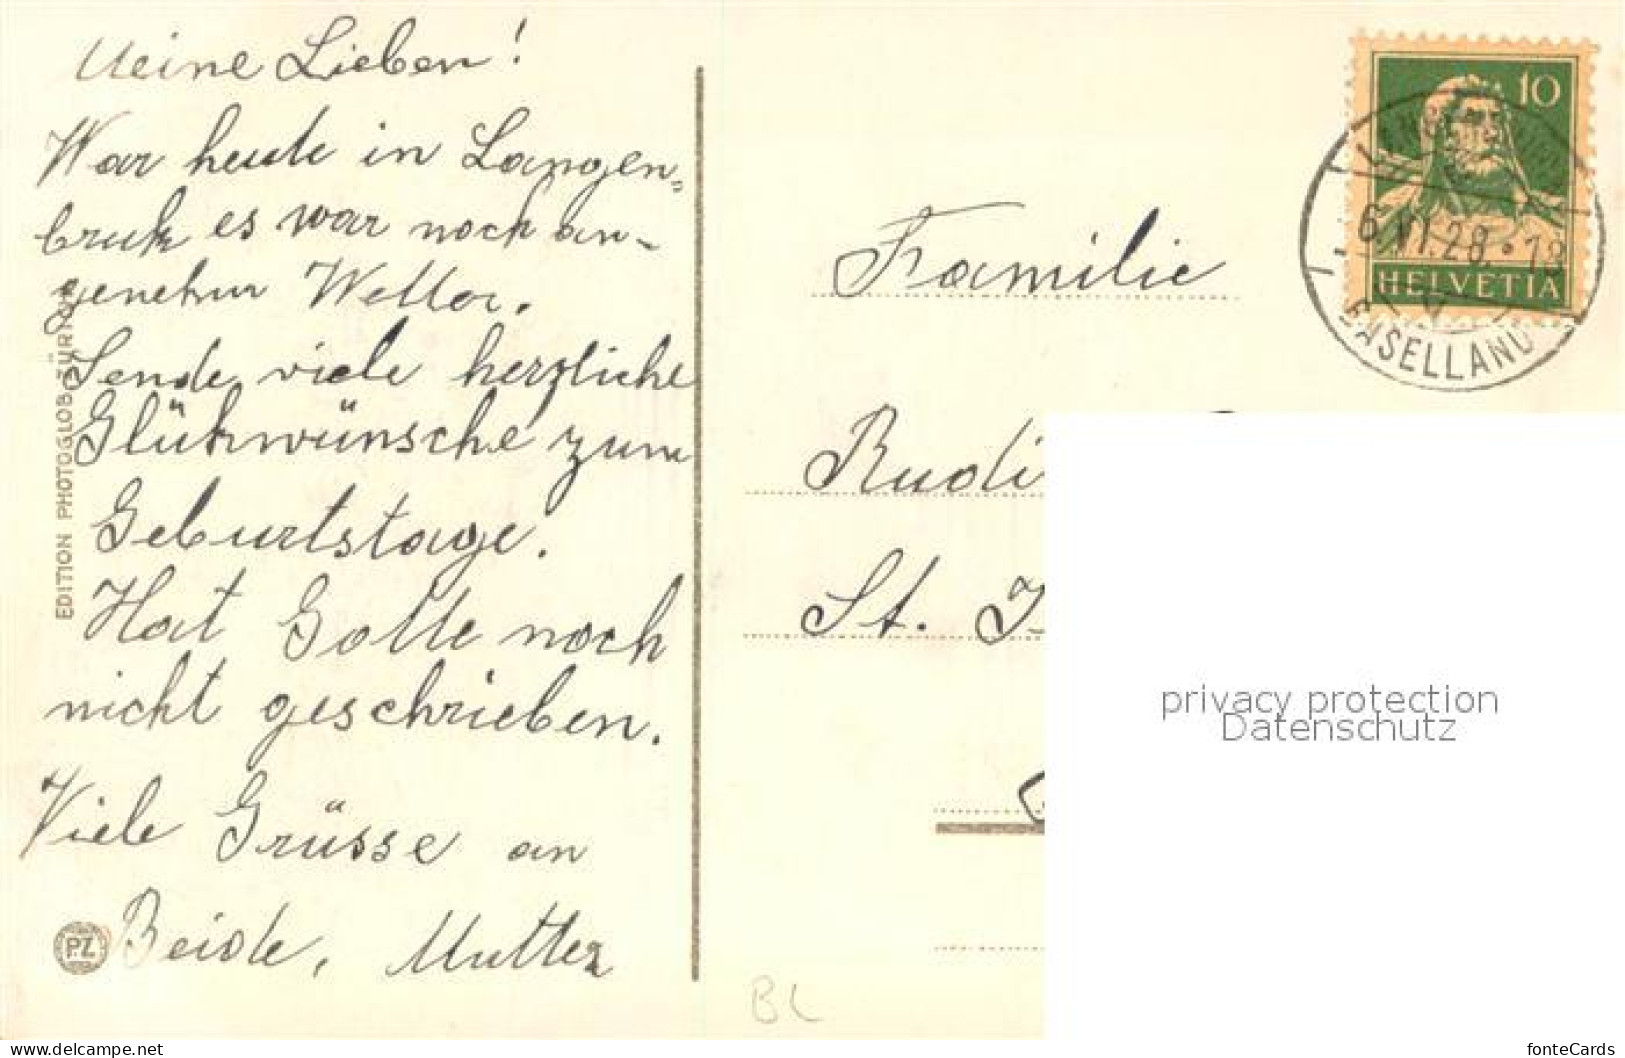 Meine Lieben!
War heute in Langen=
bruk es war noch an-
genehm Wetter.
Sende viele herzliche
Glükwünsche zum
Geburtstage.
Hat Gotte noch
nicht geschrieben.
Viele Grüsse an
Beide, Mutter
EDITION PHOTOGLOB ZÜRICH
P.Z.
BL
10
HELVETIA
6.VI.28.18
BASELLAND
Familie
Rudi
St.
privacy protection
Datenschutz
www.delcampe.net
fonteCards